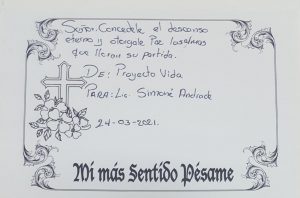 Señor. Concedele el descanso
eterno y otorgale Paz las almas
que lloran su partida.
DE: Proyecto Vida
PARA: Lic. Simone Andrade
24-03-2021.
Mi más Sentido Pésame